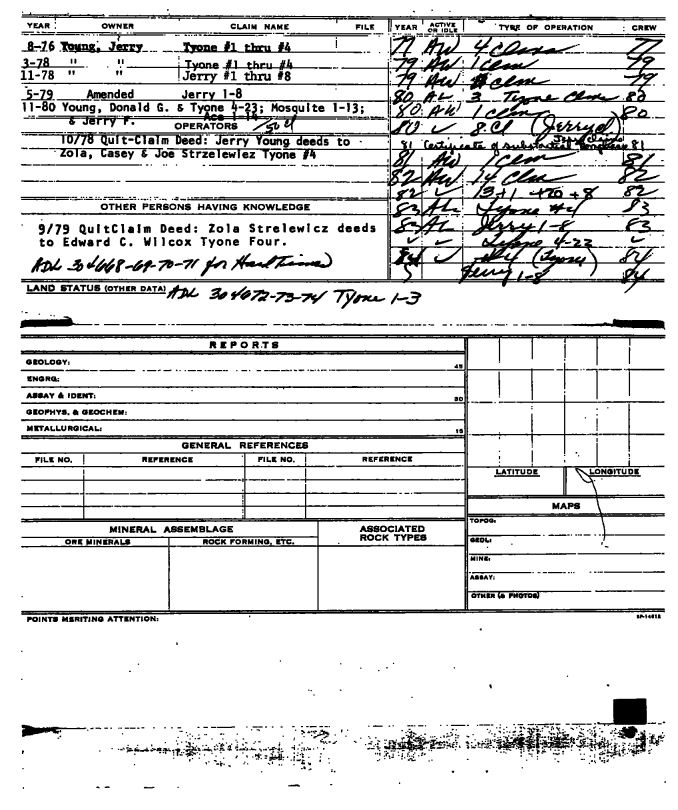 YEAR OWNER CLAIM NAME FILE
8-76 Young, Jerry Tyone #1 thru #4
3-78 " " Tyone #1 thru #4
11-78 " " Jerry #1 thru #8
5-79 Amended Jerry 1-8
11-80 Young, Donald G. & Tyone 4-23; Mosquite 1-13;
& Jerry F. Ace 1-14
OPERATORS
10/78 Quit-Claim Deed: Jerry Young deeds to
Zola, Casey & Joe Strzelewiez Tyone #4
OTHER PERSONS HAVING KNOWLEDGE
9/79 QuitClaim Deed: Zola Strelewicz deeds
to Edward C. Wilcox Tyone Four.
ADL 304668-69-70-71 for Hard Times)
LAND STATUS (OTHER DATA) ADL 304672-73-74 Tyone 1-3
YEAR ACTIVE OR IDLE TYPE OF OPERATION CREW
77 AW 4 Claims 77
79 AW 1 clm 79
79 AW clm 79
80 AL 3 Tyone Clm 80
80 AW 1 clm 80
80 ✓ 8 Cl (Jerry
81 Certificate of substantial 81
81 AW 1 clm 81
82 AW 14 Clm 82
82 ✓ 13+1 +20 +8 82
83 AL Tyone #4 83
83 AL Jerry 1-8 83
✓ ✓ Tyone 4-23 ✓
84 ✓ (Tyone) 84
Jerry 1-8 84
REPORTS
GEOLOGY: 45
ENGRG:
ASSAY & IDENT: 30
GEOPHYS. & GEOCHEM:
METALLURGICAL: 15
GENERAL REFERENCES
FILE NO. REFERENCE FILE NO. REFERENCE
LATITUDE LONGITUDE
MAPS
TOPOG:
GEOL:
MINE:
ASSAY:
OTHER (& PHOTOS)
MINERAL ASSEMBLAGE ASSOCIATED ROCK TYPES
ORE MINERALS ROCK FORMING, ETC.
POINTS MERITING ATTENTION: